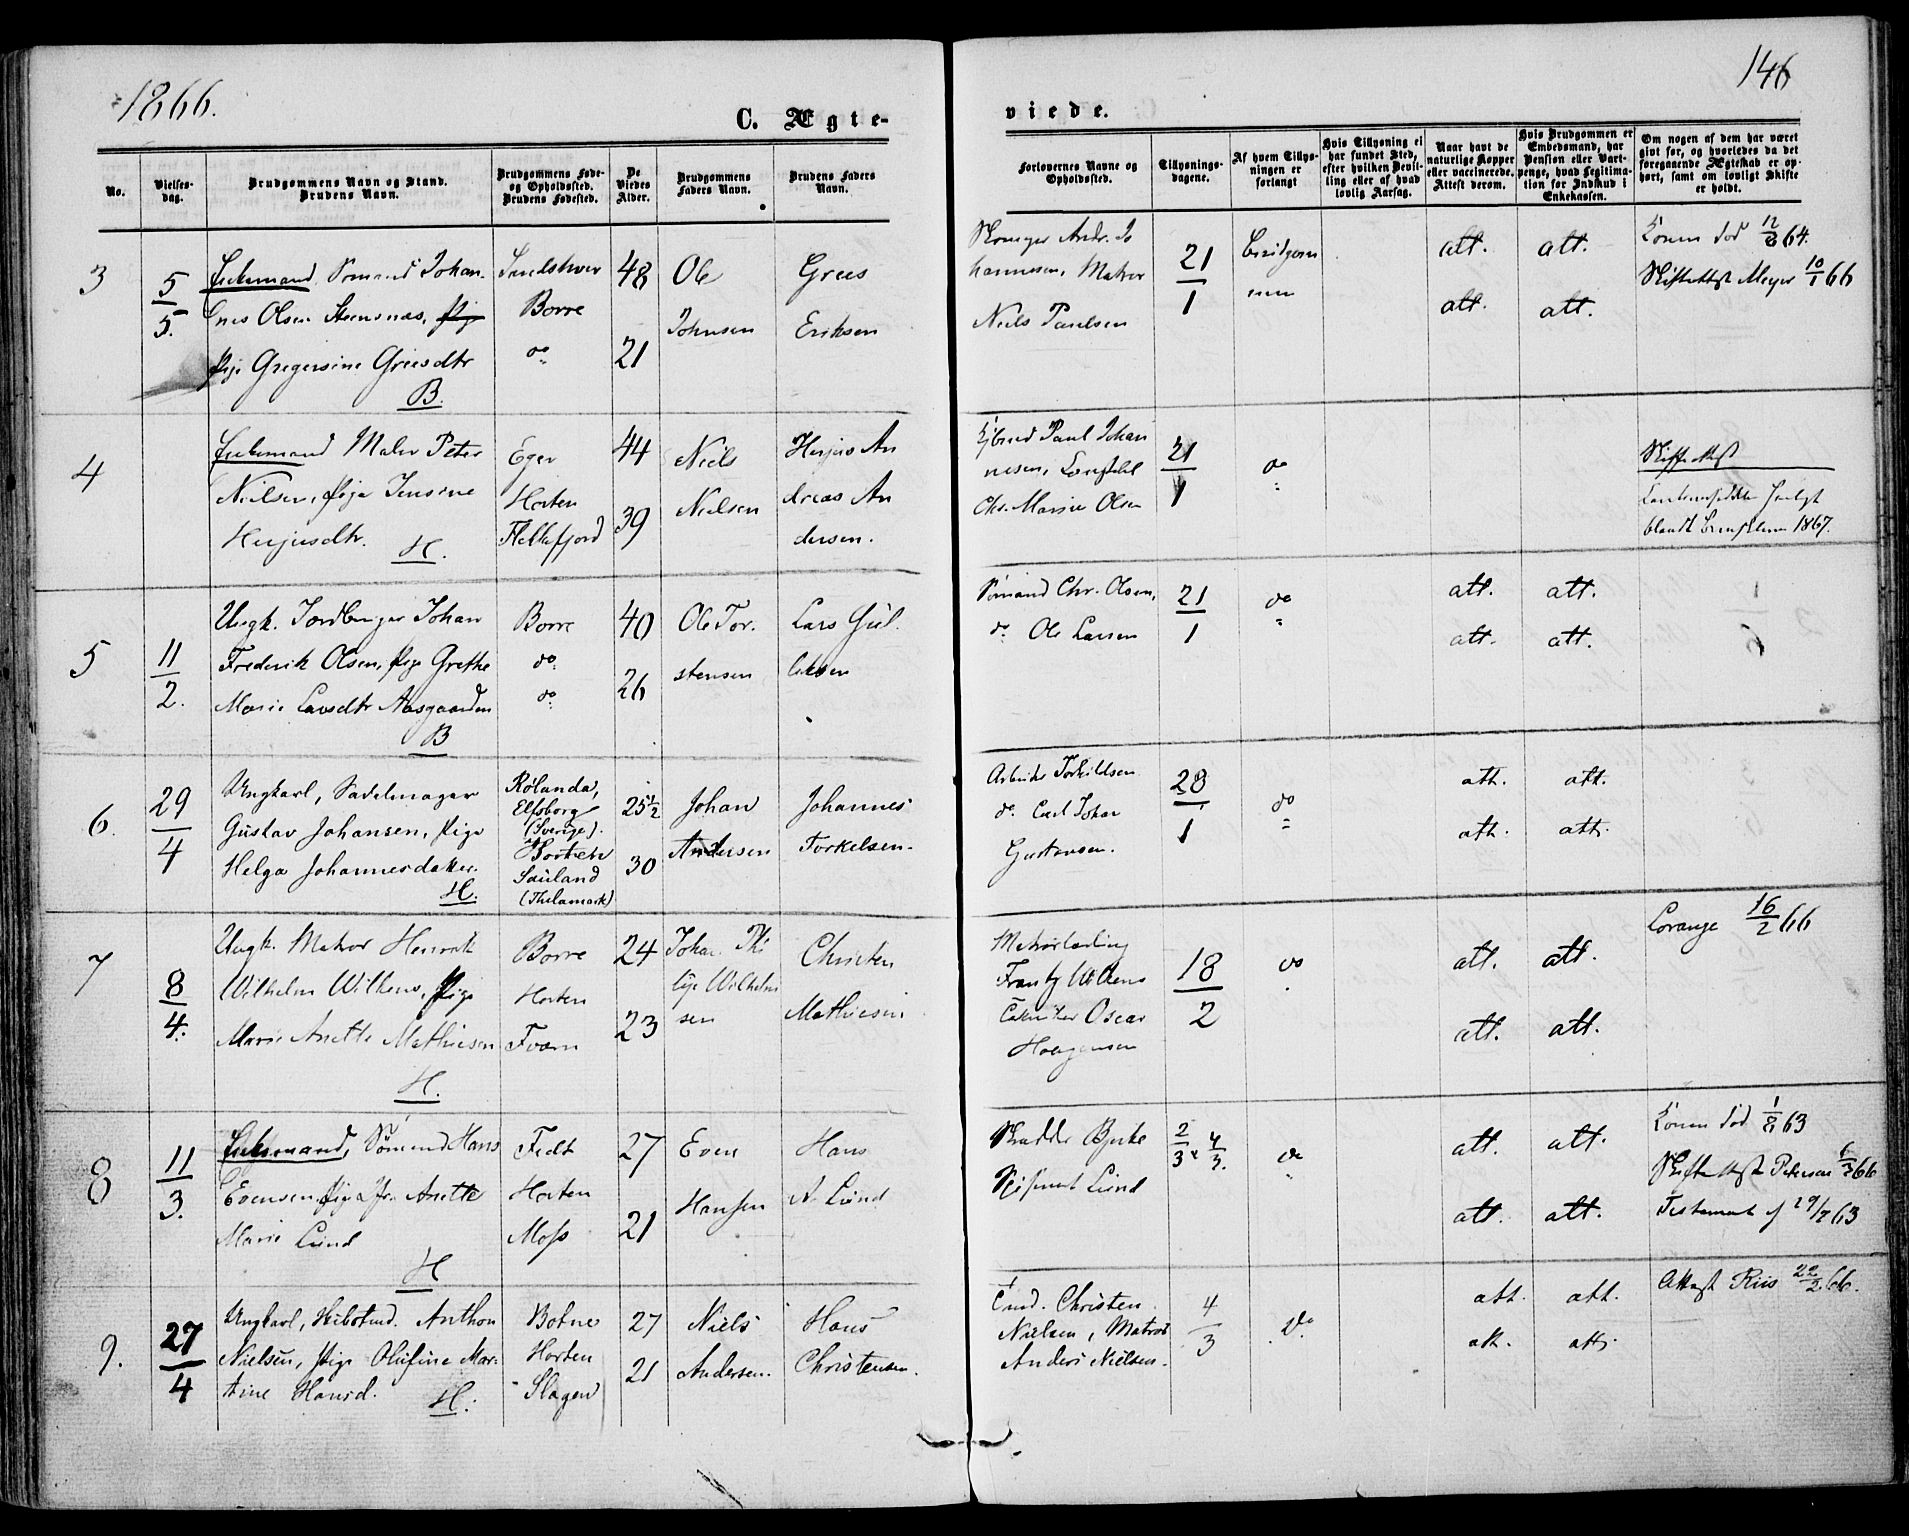 1866.
146
C. Ægte-
viede.
No.
Vielses-
dag.
Brudgommens Navn og Stand.
Brudens Navn.
Brudgommens Føde-
og Opholdssted.
Brudens Fødested.
De
Viedes
Alder.
Brudgommens
Faders Navn.
Brudens Faders
Navn.
Forlovernes Navne og
Opholdssted.
Tillysnings-
dagene.
Af hvem Tillys-
ningen er
forlangt
Hvis Tillysning ei
har fundet Sted,
efter hvilken Bevil-
ling eller af hvad
lovlig Aarsag.
Naar havt de
naturlige Kopper
eller vaccinerede.
Attest derom.
Hvis Brudgommen er
Embedsmand, har
Pension eller Vart-
penge, hvad Legitima-
tion for Indskud i
Enkekassen.
Om nogen af dem har været
givt før, og hvorledes da det
foregaaende Ægteskab er op-
hørt, samt om lovligt Skifte
er holdt.
3
5/5.
Enkemand Sømand Johan-
Olsen Steensnæs,
Pige Gregersine Greesdtr
B.
Sandsher
Borre
do
48
21
Ole
Johnsen
Grees
Eriksen
Andr. Jo
hannesen, Matros
Niels Paulsen
21/1
Brudgom
men
att. att.
att. att.
Konen død 12/8 64.
Skifteattest Meyer 10/1 66
4
Enkemand Maler Peter
Nielsen, Pige Jensine
Herjusdtr. H.
Eger
Horten
Flekkefjord
44
39
Niels
Nielsen
Herjus An
dreas An
dersen.
Paul Johan
nesen,
Chr. Marius Olsen
21/1
do
Skifteattest
blandt 1867.
5
11/2.
Ungk. Jordbruger Johan
Frederik Olsen, Pige Grethe
Marie Larsdtr Aasgaarden
B
Borre
do
do
40
26
Ole Tor.
stensen
Lars Gul.
liksen
Sømand Chr. Olsen,
do Ole Larsen
21/1
do
att. att.
att. att.
6.
29/4
Ungkarl, Sadelmager
Gustav Johansen, Pige
Helga Johannesdatter.
H.
Rølanda,
Elfsborg
(Sverige).
Horten
Sauland
(Thelamark)
25 1/2
30
Johan
Andersen
Johannes
Torkelsen.
Arbeider Torkildsen
do. Carl Johan
Gustavsen.
28/1
do
att. att.
att. att.
7
8/4.
Ungk. Matros Henrik
Wilhelm Wilkens, Pige
Marie Anette Mathiesen
H.
Borre
Horten
Fværn
24
23
Johan Thi
lije Wilhelm
sen
Christen
Mathiesen
Matroslærling
Frantz Wilkens
Oscar
Haagensen
18/2
do
att. att.
att. att.
Lorange 16/2 66
8
11/3.
Enkemand, Sømand Hans
Evensen, Pige Jfr. Anette
Marie Lund
H
Fedt
Horten
Moss
27
21
Even
Hansen
Hans
A. Lund
Skrædder Bjerke
Lund
2/3 & 4/3.
do
att. att.
att. att.
Konen død 1/8 63
Skifteattest Petersen 6/3 66
Testament af 29/7 63
9.
27/4
Ungkarl, Anthon
Nielsen, Pige Olufine Mar-
tine Hansd. H.
Botne
Horten
Slagen
27
21
Niels
Andersen.
Hans
Christensen.
Christen
Nielsen, Matros
Anders Nielsen.
4/3
do
att. att.
att. att.
Attest Riis 22/2 66.